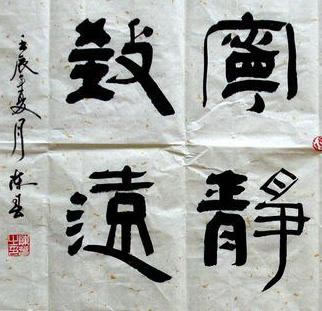 寧靜
致遠
壬辰年夏月